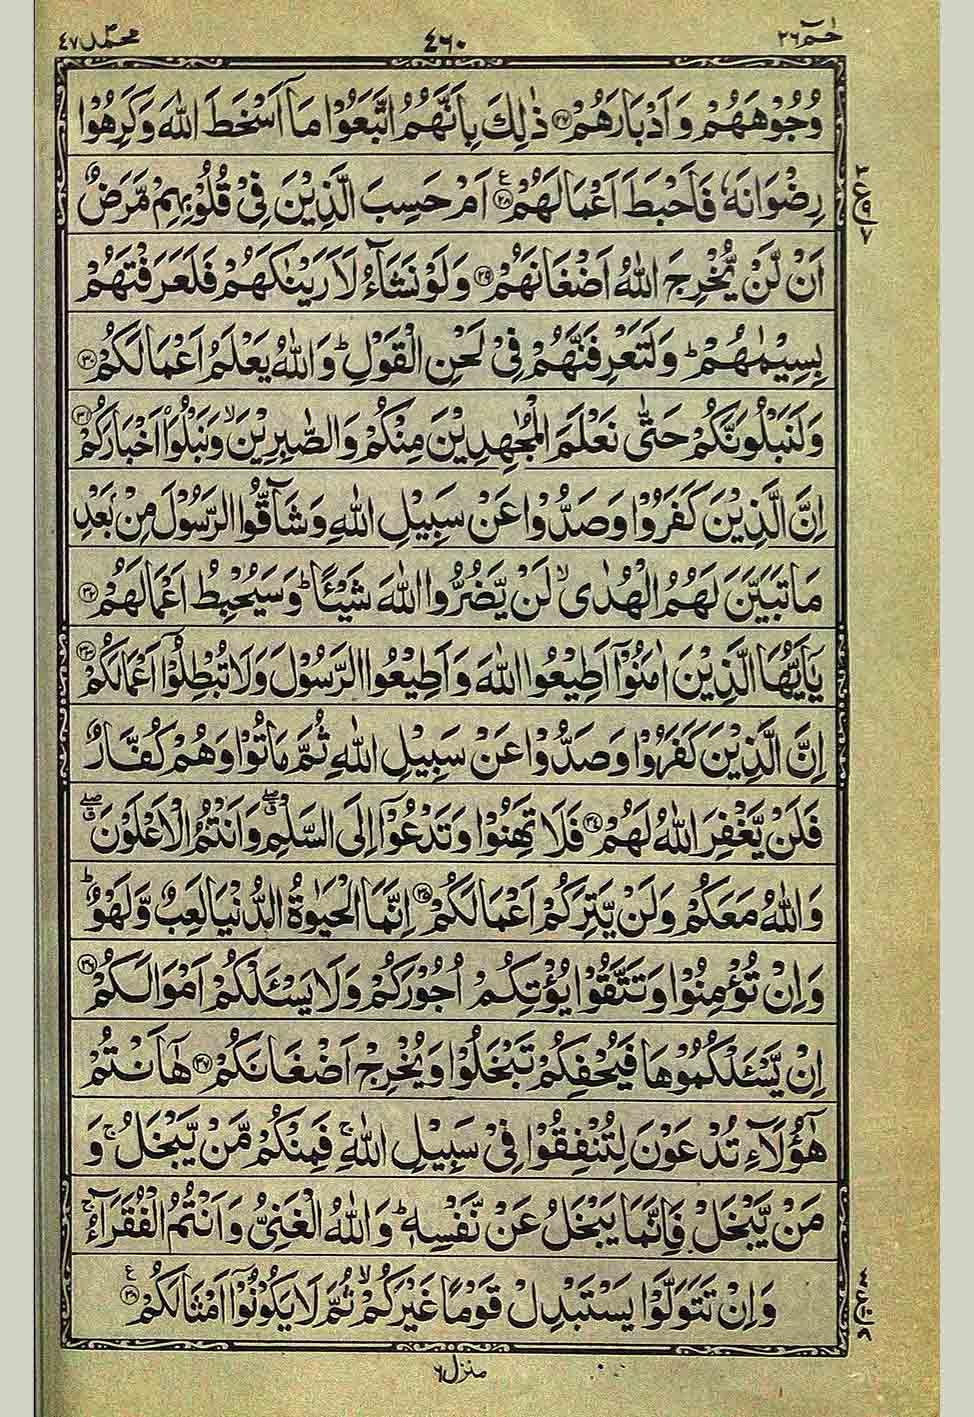 حٰمٓ ٢٦ ٤٦٠ محمد ٤٧
وُجُوْهَهُمْ وَ اَدْبَارَهُمْ ﴿٢٧﴾ ذٰلِكَ بِاَنَّهُمُ اتَّبَعُوْا مَآ اَسْخَطَ اللّٰهَ وَ كَرِهُوْا
رِضْوَانَهٗ فَاَحْبَطَ اَعْمَالَهُمْ ﴿٢٨﴾ ع اَمْ حَسِبَ الَّذِيْنَ فِيْ قُلُوْبِهِمْ مَّرَضٌ
اَنْ لَّنْ يُّخْرِجَ اللّٰهُ اَضْغَانَهُمْ ﴿٢٩﴾ وَ لَوْ نَشَآءُ لَاَرَيْنٰكَهُمْ فَلَعَرَفْتَهُمْ
بِسِيْمٰهُمْ ؕ وَ لَتَعْرِفَنَّهُمْ فِيْ لَحْنِ الْقَوْلِ ؕ وَ اللّٰهُ يَعْلَمُ اَعْمَالَكُمْ ﴿٣٠﴾
وَ لَنَبْلُوَنَّكُمْ حَتّٰى نَعْلَمَ الْمُجٰهِدِيْنَ مِنْكُمْ وَ الصّٰبِرِيْنَ ۙ وَ نَبْلُوَا۟ اَخْبَارَكُمْ ﴿٣١﴾
اِنَّ الَّذِيْنَ كَفَرُوْا وَ صَدُّوْا عَنْ سَبِيْلِ اللّٰهِ وَ شَآقُّوا الرَّسُوْلَ مِنْۢ بَعْدِ
مَا تَبَيَّنَ لَهُمُ الْهُدٰى ۙ لَنْ يَّضُرُّوا اللّٰهَ شَيْـًٔا ؕ وَ سَيُحْبِطُ اَعْمَالَهُمْ ﴿٣٢﴾
يٰۤاَيُّهَا الَّذِيْنَ اٰمَنُوْۤا اَطِيْعُوا اللّٰهَ وَ اَطِيْعُوا الرَّسُوْلَ وَ لَا تُبْطِلُوْۤا اَعْمَالَكُمْ ﴿٣٣﴾
اِنَّ الَّذِيْنَ كَفَرُوْا وَ صَدُّوْا عَنْ سَبِيْلِ اللّٰهِ ثُمَّ مَاتُوْا وَ هُمْ كُفَّارٌ
فَلَنْ يَّغْفِرَ اللّٰهُ لَهُمْ ﴿٣٤﴾ فَلَا تَهِنُوْا وَ تَدْعُوْۤا اِلَى السَّلْمِ ۖق وَ اَنْتُمُ الْاَعْلَوْنَ ۖق
وَ اللّٰهُ مَعَكُمْ وَ لَنْ يَّتِرَكُمْ اَعْمَالَكُمْ ﴿٣٥﴾ اِنَّمَا الْحَيٰوةُ الدُّنْيَا لَعِبٌ وَّ لَهْوٌ ؕ
وَ اِنْ تُؤْمِنُوْا وَ تَتَّقُوْا يُؤْتِكُمْ اُجُوْرَكُمْ وَ لَا يَسْـَٔلْكُمْ اَمْوَالَكُمْ ﴿٣٦﴾
اِنْ يَّسْـَٔلْكُمُوْهَا فَيُحْفِكُمْ تَبْخَلُوْا وَ يُخْرِجْ اَضْغَانَكُمْ ﴿٣٧﴾ هٰۤاَنْتُمْ
هٰۤؤُلَآءِ تُدْعَوْنَ لِتُنْفِقُوْا فِيْ سَبِيْلِ اللّٰهِ ۚ فَمِنْكُمْ مَّنْ يَّبْخَلُ ۚ وَ
مَنْ يَّبْخَلْ فَاِنَّمَا يَبْخَلُ عَنْ نَّفْسِهٖ ؕ وَ اللّٰهُ الْغَنِيُّ وَ اَنْتُمُ الْفُقَرَآءُ ۚ
وَ اِنْ تَتَوَلَّوْا يَسْتَبْدِلْ قَوْمًا غَيْرَكُمْ ۙ ثُمَّ لَا يَكُوْنُوْۤا اَمْثَالَكُمْ ﴿٣٨﴾ ع
منزل ٦